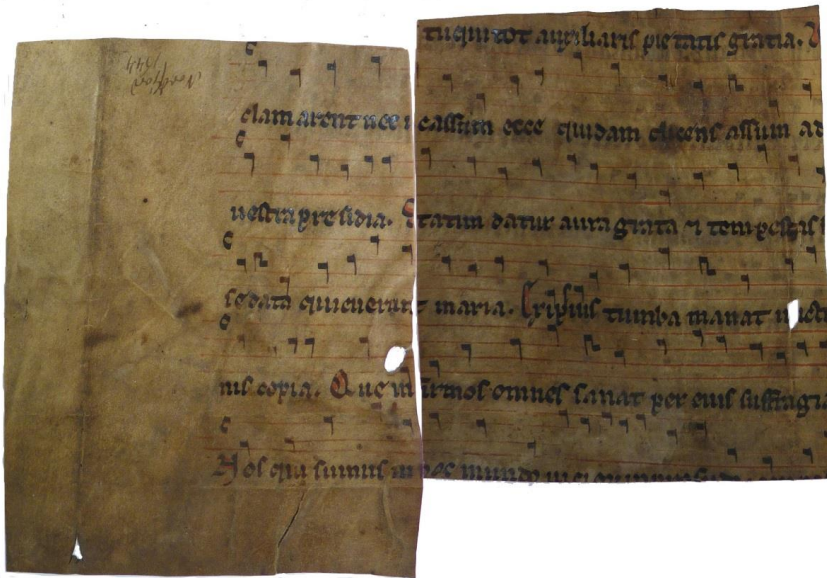 tu qui tot auxiliaris pietatis gratia. D
clamarent nec incassum ecce quidam dicens assum ad
uestra presidia. Statim datur aura grata ⁊ tempestas
sedata quieuerunt maria. Ex ipsius tumba manat uncti
nis copia. Que infirmos omnes sanat per eius suffragia
Nos qui sumus in hoc mundo